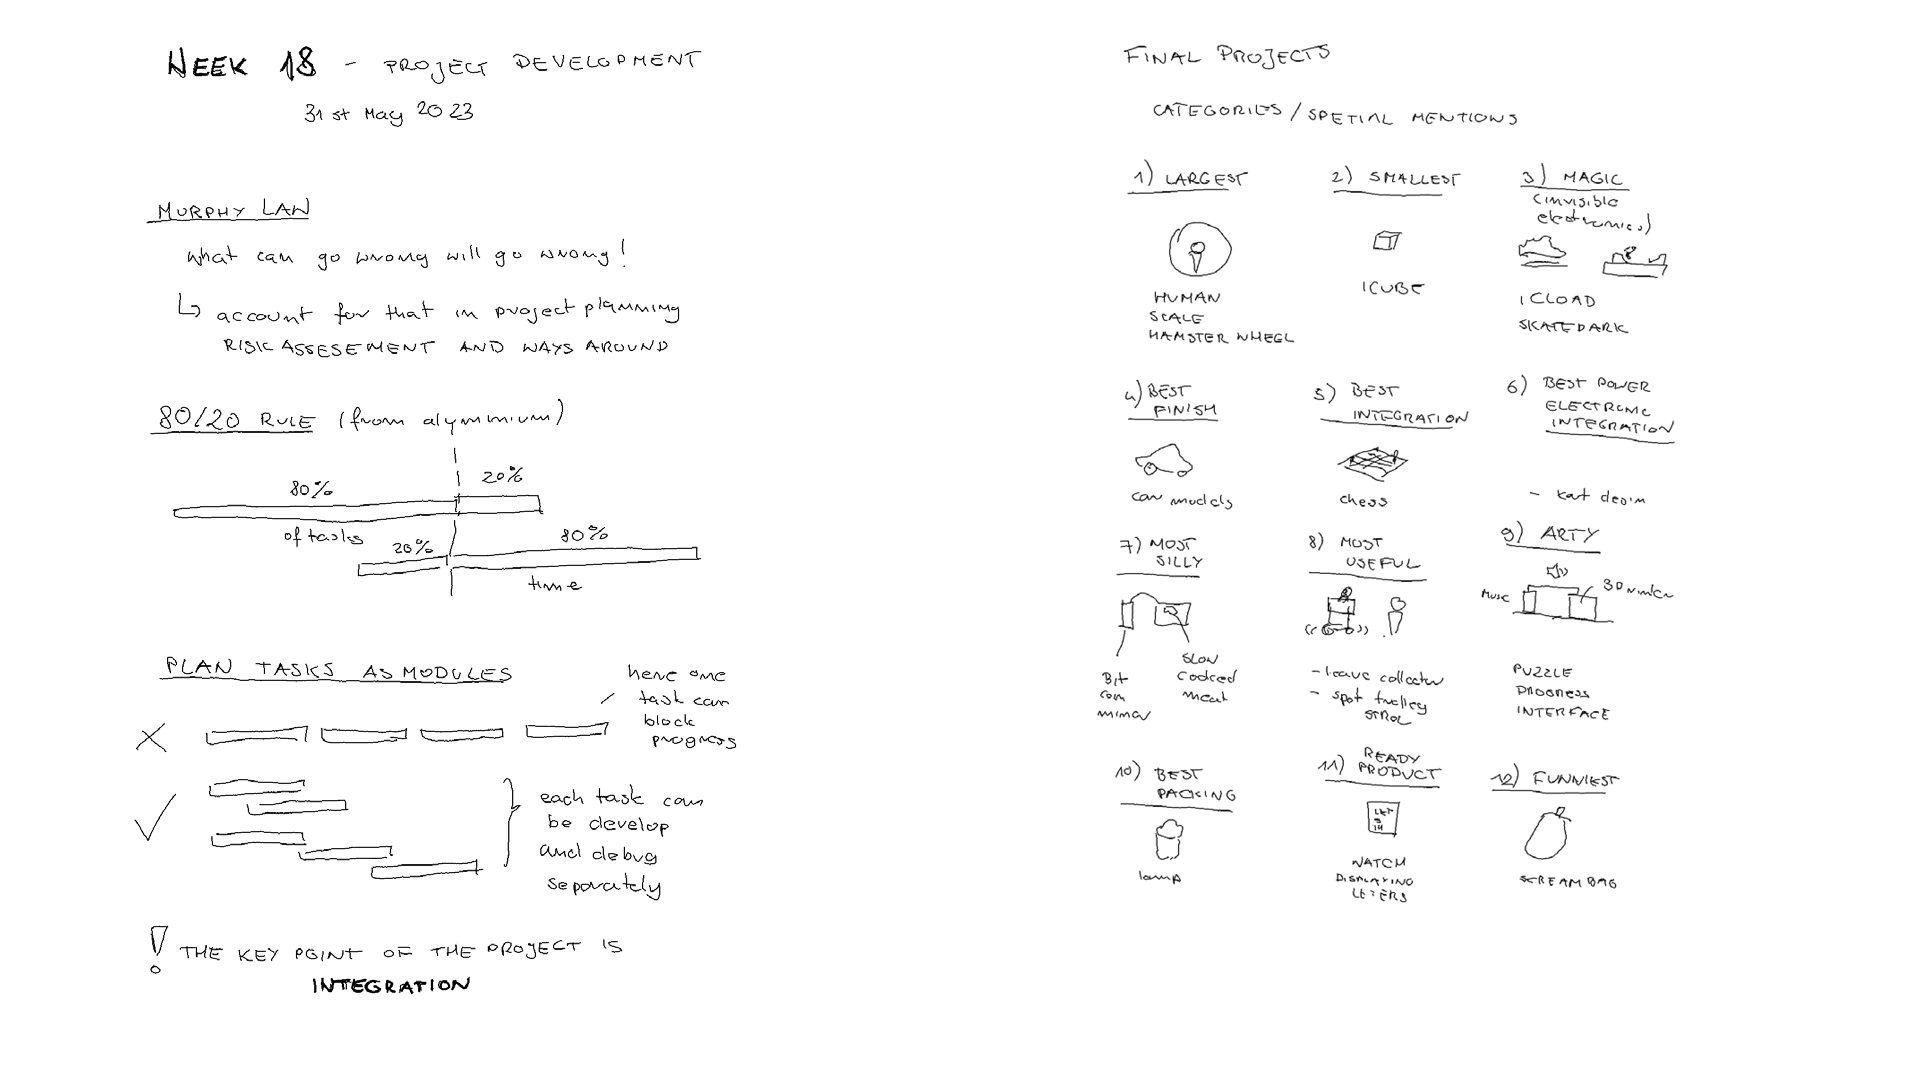 WEEK 18 - PROJECT DEVELOPMENT
31 st May 2023
MURPHY LAW
what can go wrong will go wrong!
↳ account for that in project planning
RISK ASSESEMENT AND WAYS AROUND
80/20 RULE (from alyminium)
80% 20%
of tasks
20% 80%
time
PLAN TASKS AS MODULES
here one
task can
block
progress
each task can
be develop
and debug
separately
! THE KEY POINT OF THE PROJECT IS
INTEGRATION
FINAL PROJECTS
CATEGORIES / SPETIAL MENTIONS
1) LARGEST
HUMAN
SCALE
HAMSTER WHEEL
2) SMALLEST
ICUBE
3) MAGIC
(invisible
electronics)
ICLOAD
SKATEDARK
4) BEST
FINISH
car models
5) BEST
INTEGRATION
chess
6) BEST POWER
ELECTRONIC
INTEGRATION
7) MOST
SILLY
Bit
coin
miner
SLOW
COOKED
meat
8) MOST
USEFUL
- leave collector
- spot trolley
9) ARTY
MUSIC
PUZZLE
PROGRESS
INTERFACE
10) BEST
PACKING
lamp
11) READY
PRODUCT
WATCH
DISPLAYING
LETTERS
12) FUNNIEST
SCREAM BAG